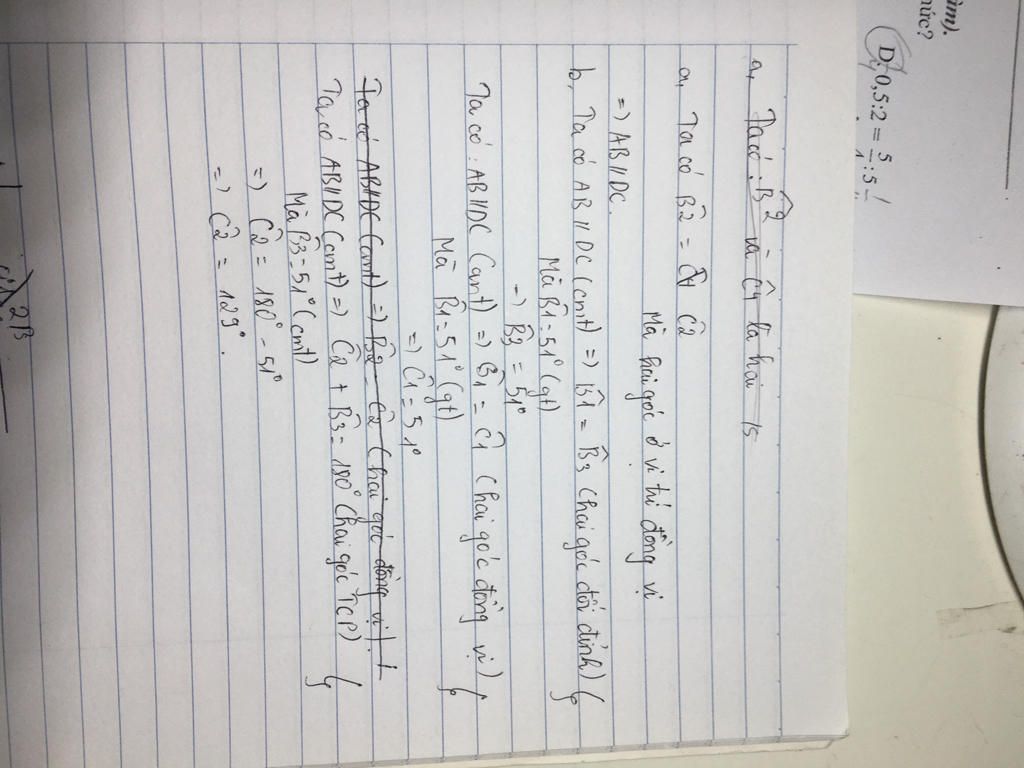 àm).
hức?
D. 0,5:2 = 5/1 : 5
a, Ta có: B̂2 và Ĉ1 là hai
a, Ta có B̂2 = Ĉ2
Mà hai góc ở vị trí đồng vị
=) AB//DC.
b, Ta có AB//DC (cmt) =) B̂1 = B̂3 (hai góc đối đỉnh)
Mà B̂1 = 51° (gt)
=) B̂3 = 51°
Ta có: AB//DC (cmt) =) B̂1 = Ĉ1 (hai góc đồng vị)
Mà B̂1 = 51° (gt)
=) Ĉ1 = 51°
Ta có AB//DC (cmt) =) B̂2 = Ĉ2 (hai góc đồng vị)
Ta có AB//DC (cmt) =) Ĉ2 + B̂3 = 180° (hai góc TCP)
Mà B̂3 = 51° (cmt)
=) Ĉ2 = 180° - 51°
=) Ĉ2 = 129°.